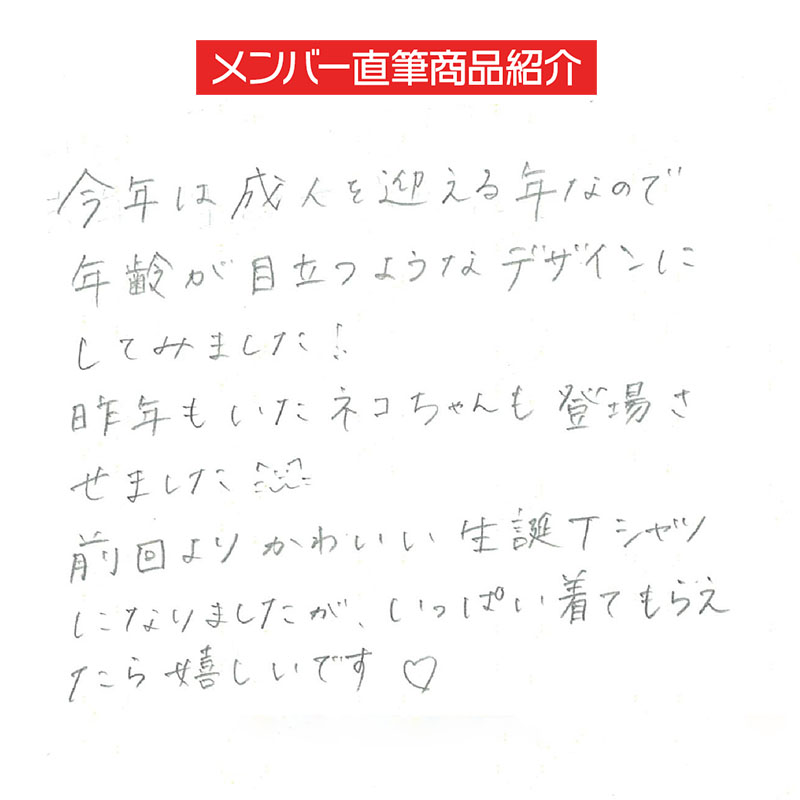 メンバー直筆商品紹介
今年は成人を迎える年なので
年齢が目立つようなデザインに
してみました!
昨年もいたネコちゃんも登場さ
せました
前回よりかわいい生誕Tシャツ
になりましたが、いっぱい着てもらえ
たら嬉しいです♡